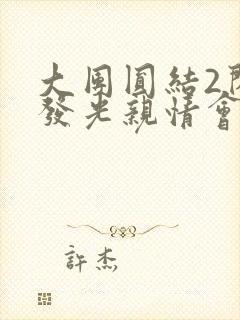 大團圓結2
發光親情會
許杰